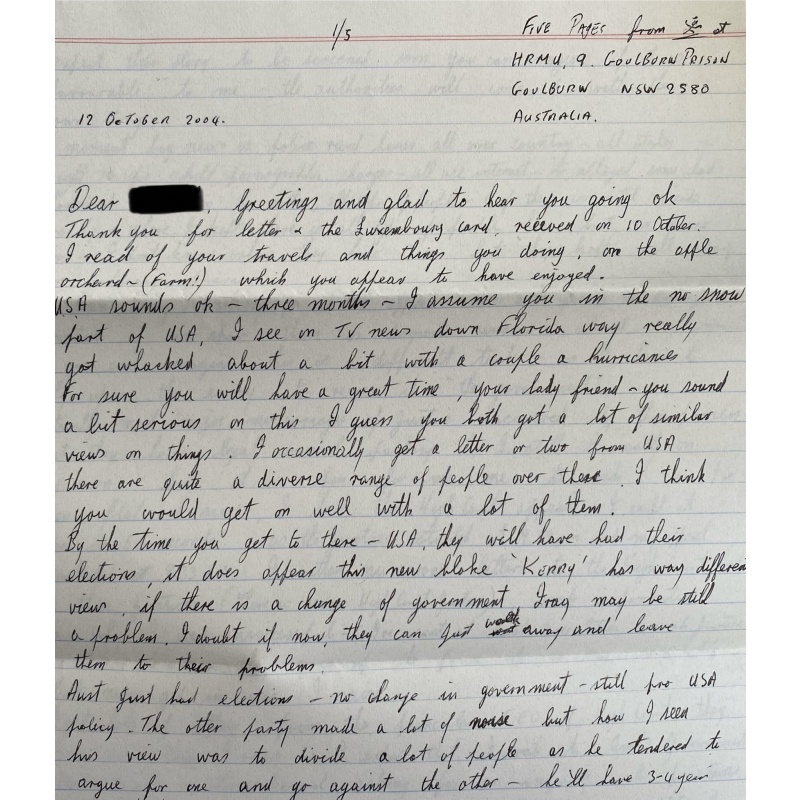 1/5
FIVE PAGES from at
HRMU, 9. GOULBURN PRISON
GOULBURN NSW 2580
AUSTRALIA.
12 OCTOBER 2004.
Dear , Greetings and glad to hear you going ok
Thank you for letter & the Luxembourg card, received on 10 October.
I read of your travels and things you doing, on the apple
orchard - (Farm!) which you appear to have enjoyed.
USA sounds ok - three months - I assume you in the no snow
part of USA, I see on TV news down Florida way really
got whacked about a bit with a couple a hurricanes
For sure you will have a great time, your lady friend - you sound
a bit serious on this I guess you both got a lot of similar
views on things. I occasionally get a letter or two from USA
there are quite a diverse range of people over there. I think
you would get on well with a lot of them.
By the time you get to there - USA, they will have had their
elections, it does appear this new bloke 'KERRY' has way differen
view, if there is a change of government Iraq may be still
a problem. I doubt if now, they can just walk away and leave
them to their problems.
Aust Just had elections - no change in government - still pro USA
policy. The other party made a lot of noise but how I seen
his view was to divide a lot of people as he tendered to
argue for one and go against the other - he'll have 3-4 years